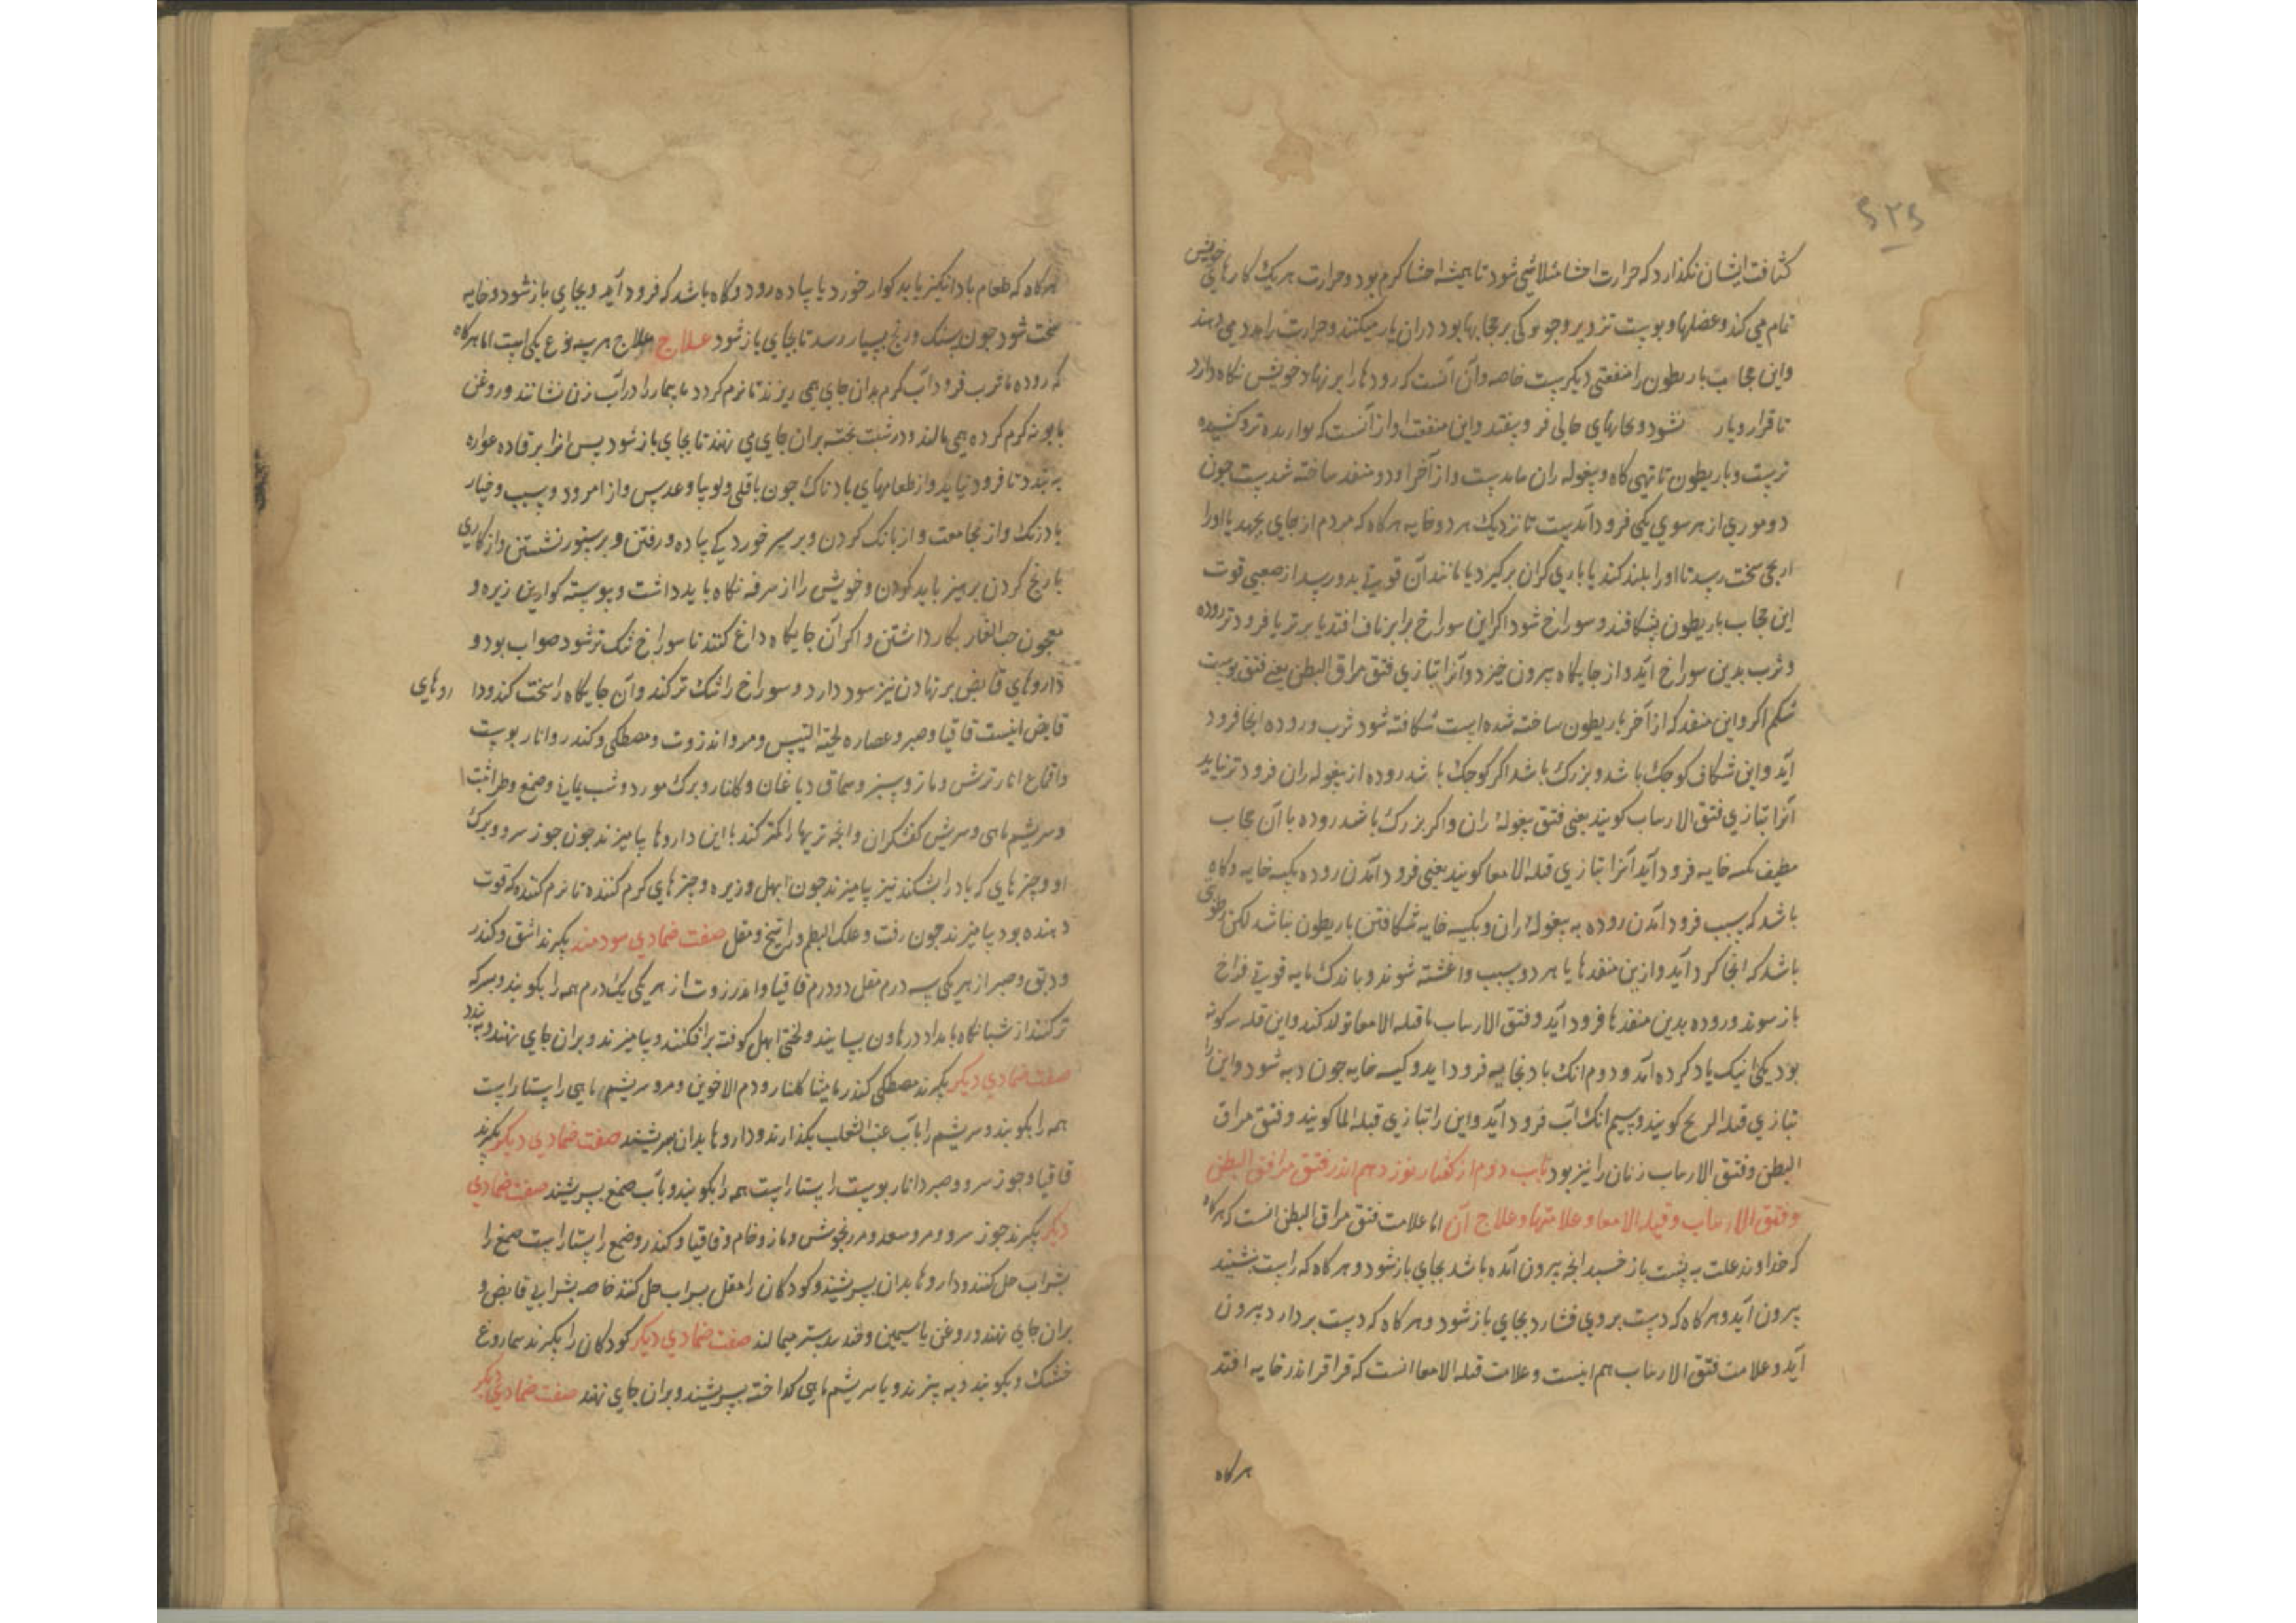 ۶۲۶
کثافت ایشان نگذارد که حرارت احشا متلاشی شود تا همیشه احشا کرم بود و حرارت هر یک کارهای خویش
تمام می کند و عضلها و پوست نزدیر و جو کی بر حجابها بود دران یار میکنند و حرارت را مدد می دهند
و این حجاب باریطون را منفعتی دیکرست خاصه و آن آنست که رودها را بر نهاد خویش نگاه دارد
تا قرار و بار نشود و بجایهای خالی فرو نیفتد و این منفعت او از آنست که بوار بده فرو کشیده
ترست و باریطون تا تهی کاه و بیغوله ران ماندست و از آخر او دو منفذ ساخته شدست جون
دو موری از هر سوی یکی فرود آمدست تا نزدیک هر دو خایه هرکاه که مردم از جای بجهد یا اورا
رنجی سخت رسد تا اورا بلند کند یا باری کران برکیرد یا مانند آن قوتی بدو رسد از صعبی قوت
این حجاب باریطون بشکافد و سوراخ شود اکر این سوراخ برابر ناف افتد یا برتر یا فرودتر روده
و ثرب بدین سوراخ آید و از جایکاه بیرون خیزد و آنرا بتازی فتق مراق البطن یعنی فتق بوست
شکم اکر و این منفذ که از آخر باریطون ساخته شده است شکافته شود ثرب و روده آنجا فرود
آید و این شکاف کوجک باشد و بزرک باشد اکر کوجک باشد روده از بیغوله ران فروتر نیاید
آنرا بتازی فتق الاربیاب کویند یعنی فتق بیغوله ران و اکر بزرک باشد روده با آن حجاب
مطیف بکیسه خایه فرود آید آنرا بتازی قیله الامعا کویند یعنی فرود آمدن روده بکیسه خایه و کاه
باشد که سبب فرود آمدن روده به بیغوله ران و بکیسه خایه شکافتن باریطون نباشد لکن رطوبتی
باشد که آنجا کرد آید و ازین منفذها یا هر دو سبب واغشته شوند و باندک مایه قوتی فراخ
باز شوند و روده بدین منفذها فرود آید و فتق الاربیاب با قیله الامعا تولد کند و این قیله سه کونه
بود یکی انیک یاد کرده آمد و دوم آنک باد بخایه فرود اید و کیسه خایه جون دبه شود و این را
بتازی قیله الریح کویند و سیم آنک آب فرود آید و این را بتازی قیله الما کویند و فتق مراق
البطن و فتق الاربیاب زنان را نیز بود باب دوم از کفتار نوزدهم اندر فتق مراق البطن
و فتق الاربیاب و قیله الامعا و علامتها و علاج آن اما علامت فتق مراق البطن انست که هرکاه
که خداوند علت به بشت باز خسبد انجه بیرون آمده باشد بجای باز شود و هرکاه که راست بنشیند
بیرون آید و هرکاه که دست بروی فشارد بجای باز شود و هرکاه که دست بردارد بیرون
آید و علامت فتق الاربیاب هم اینست و علامت قیله الامعا انست که قراقر اندر خایه افتد
هرکاه
هرکاه که طعام باد انکیز یا بد کوار خورد یا پیاده رود و کاه باشد که فرود آید و بجای باز نشود و خایه
سخت شود جون سنک و رنج بسیار رسد تا بجای باز شود علاج علاج هر سه نوع یکی است اما هرکاه
که روده یا ثرب فرود آب کرم بدان جای همی ریزند تا نرم کردد یا بیمار را در آب زن نشانند و روغن
بابونه کرم کرده همی مالند و در شبت بخته بران جای می نهند تا بجای باز شود بس انرا برفاده عواره
به بندد تا فرود نیاید و از طعامهای باد ناک جون باقلی و لوبیا و عدس و از امرود و سیب و خیار
بادرنک و از مجامعت و از بانک کردن و بر سر خوردکی پیاده و رفتن و بر ستور نشستن و از کاری
با رنج کردن برهیز باید کردن و خویش را از سرفه نکاه باید داشت و بیوسته کوارین زیره و
معجون حب الغار بکار داشتن و اکر آن جایکاه داغ کنند تا سوراخ تنک تر شود صواب بود و
داروهای قابض بر نهادن نیز سود دارد و سوراخ را تنک تر کند و آن جایکاه را سخت کند و داروهای
قابض اینست قاقیا و صبر و عصاره لحیة التیس و مر و انذروت و مصطکی و کندر و انار بوست
و اقماع انار ترش و مازو سبز و سماق دباغان و کلنار و برک مورد و شب یمانی و صمغ و طراثیث
و سریشم ماهی و سریش کفشکران و انجه تریها را کمتر کند با این داروها بیامیزند جون جوز سرو و برک
او و چیزهای که باد را بشکند نیز بیامیزند جون ابهل و زیره و چیزهای کرم کننده تا نرم کننده که قوت
دهنده بود بیامیزند جون زفت و علک البطم و راتینج و مقل صفت ضمادی سودمند بکیرند اشق و کندر
و دبق و صبر از هر یکی سه درم مقل دو درم قاقیا و انذروت از هر یکی یک درم همه را بکوبند و بسرکه
تر کنند از شبانکاه تا بامداد در هاون بسایند و لختی ابهل کوفته برافکنند و بیامیزند و بران جای نهند و به بندد
صفت ضمادی دیکر بکیرند مصطکی کندر مامیثا کلنار و دم الاخوین و مر و سریشم ماهی راستا راست
همه را بکوبند و سریشم را با آب عنب الثعلب بکدازند و داروها بدان بسریشند صفت ضمادی دیکر بکیرند
قاقیا و جوز سرو و صبر و انار بوست راستا راست همه را بکوبند و بآب صمغ بسریشند صفت ضمادی
دیکر بکیرند جوز سرو و مر و سعد و مرزنجوش و مازو خام و قاقیا و کندر و صمغ راستا راست صمغ را
بشراب حل کنند و داروها بدان بسریشند و کودکان را مقل بسراب حل کنند خاصه بشرابی قابض و
بران جای نهند و روغن یاسمین و قند بستر میمالند صفت ضمادی دیکر کودکان را بکیرند سماروغ
خشک و بکوبند و به بیزند و با سریشم ماهی کداخته بسریشند و بران جای نهند صفت ضمادی دیکر